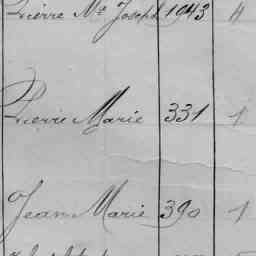 Pierre Me Joseph 1943 4
Pierre Marie 331 1
Jean Marie 390 1